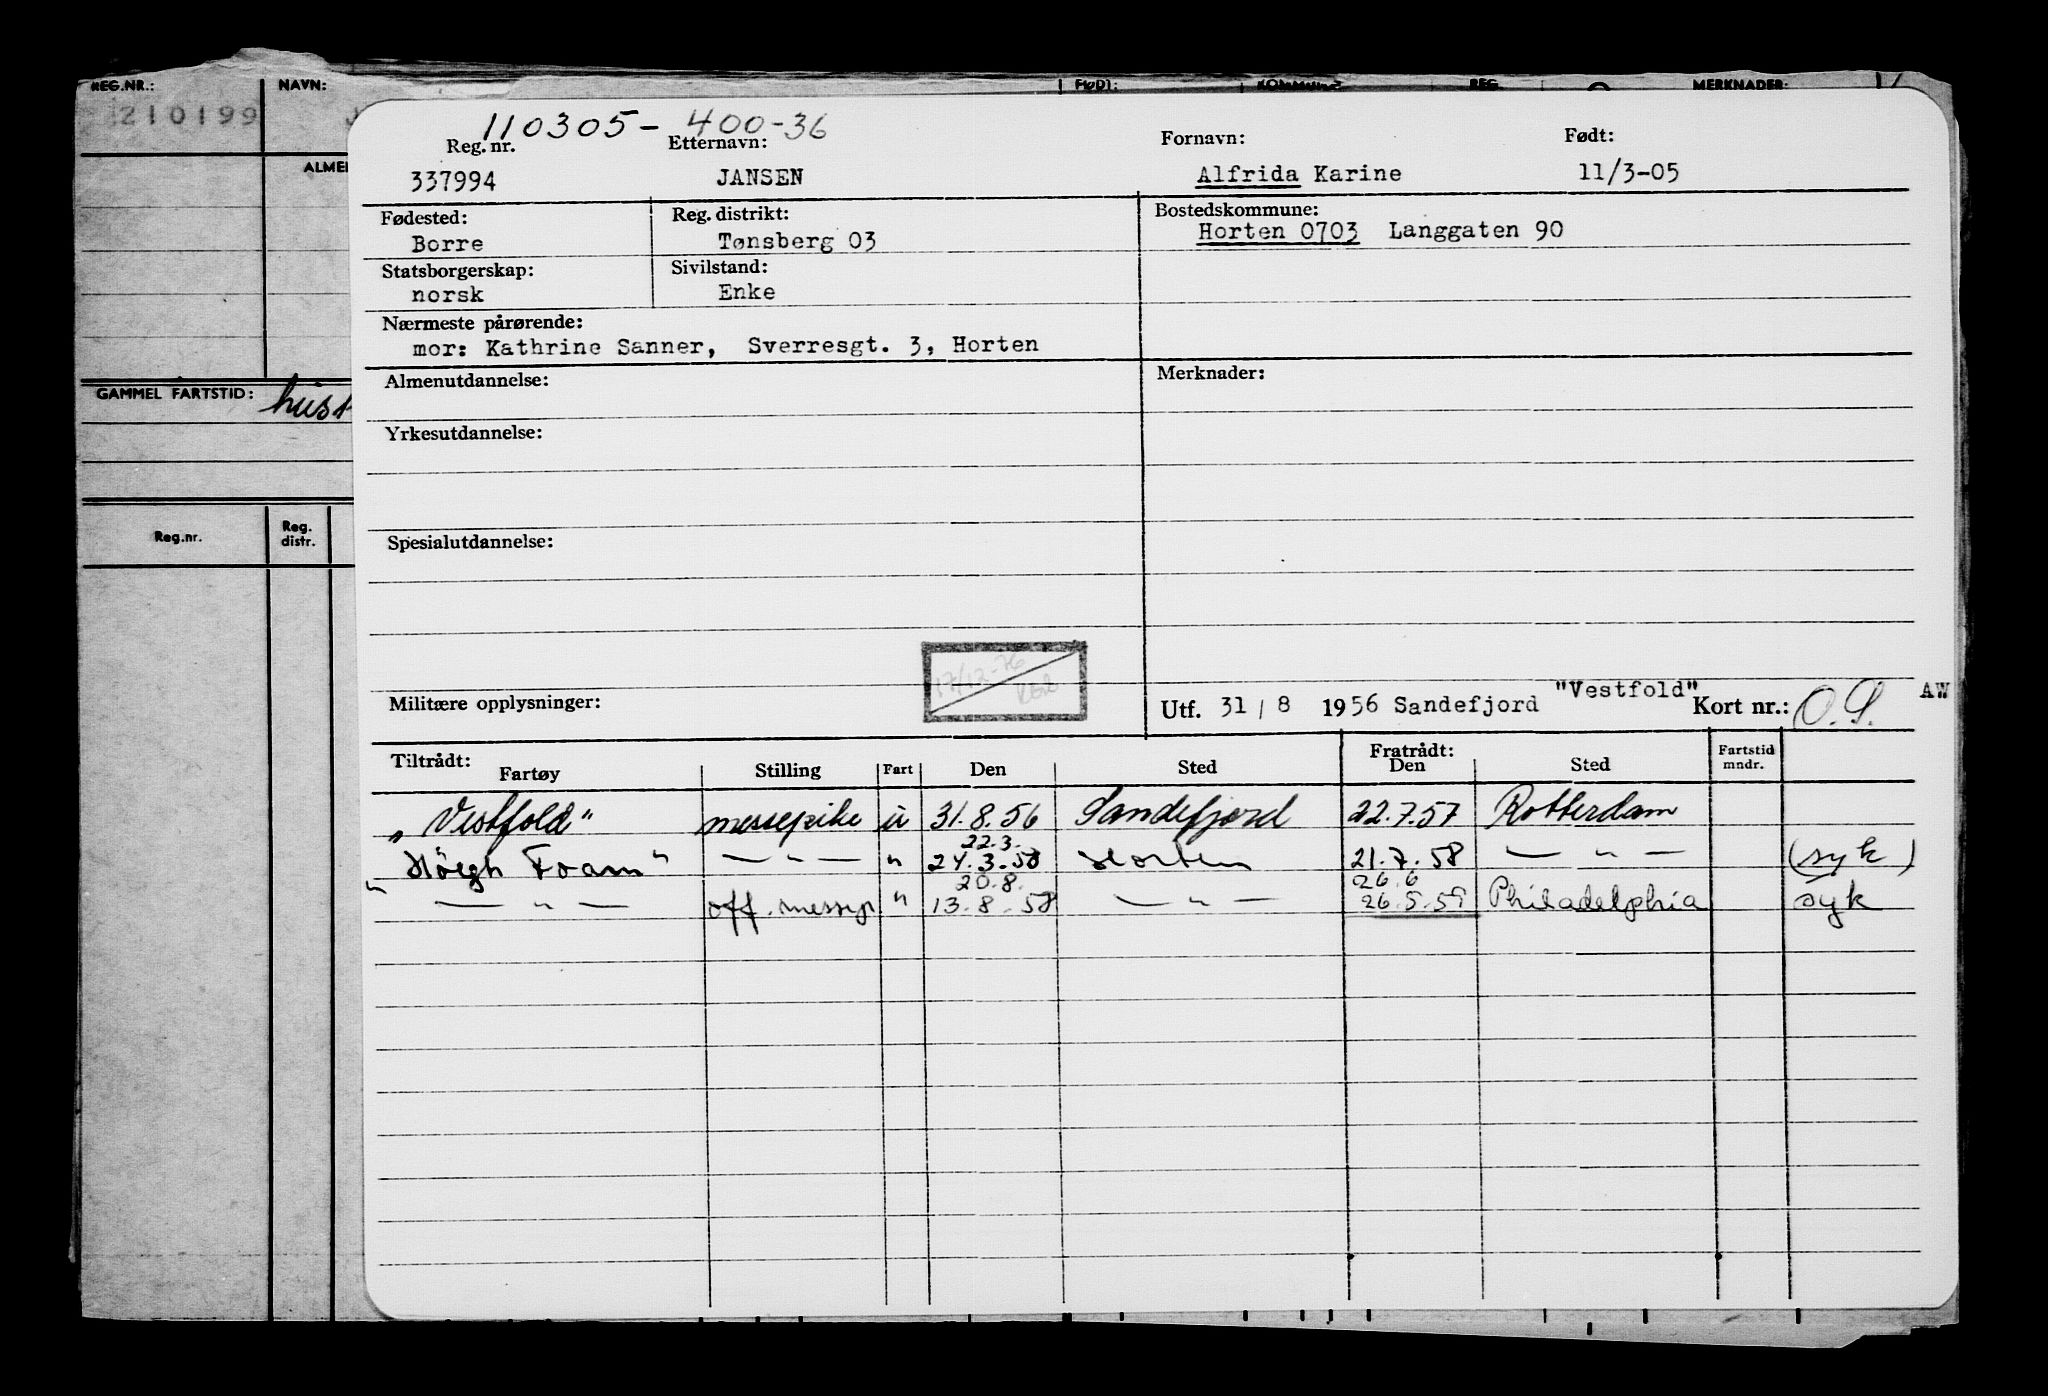 REG.NR.: NAVN: FØDT: KOMMUNE REG. MERKNADER:
210199 J
110305- 400-36
Reg. nr. Etternavn: Fornavn: Født:
ALME
337994 JANSEN Alfrida Karine 11/3-05
Fødested: Reg. distrikt: Bostedskommune:
Borre Tønsberg 03 Horten 0703 Langgaten 90
Statsborgerskap: Sivilstand:
norsk Enke
Nærmeste pårørende:
mor: Kathrine Sanner, Sverresgt. 3, Horten
Almenutdannelse: Merknader:
GAMMEL FARTSTID: hust
Yrkesutdannelse:
Reg.nr. Reg. distr.
Spesialutdannelse:
17/12-76
Militære opplysninger: Utf. 31 / 8 1956 Sandefjord "Vestfold" Kort nr.: O.S. AW
Tiltrådt: Fratrådt: Fartstid
Fartøy Stilling Fart Den Sted Den Sted mndr.
"Vestfold" messepike u 31.8.56 Sandefjord 22.7.57 Rotterdam
22.3.
"Höegh Foam" — " — " 24.3.58 Horten 21.7.58 — " — (syk)
20.8. 26.6
— " — off. messep " 13.8.58 — " — 26.5.59 Philadelphia syk